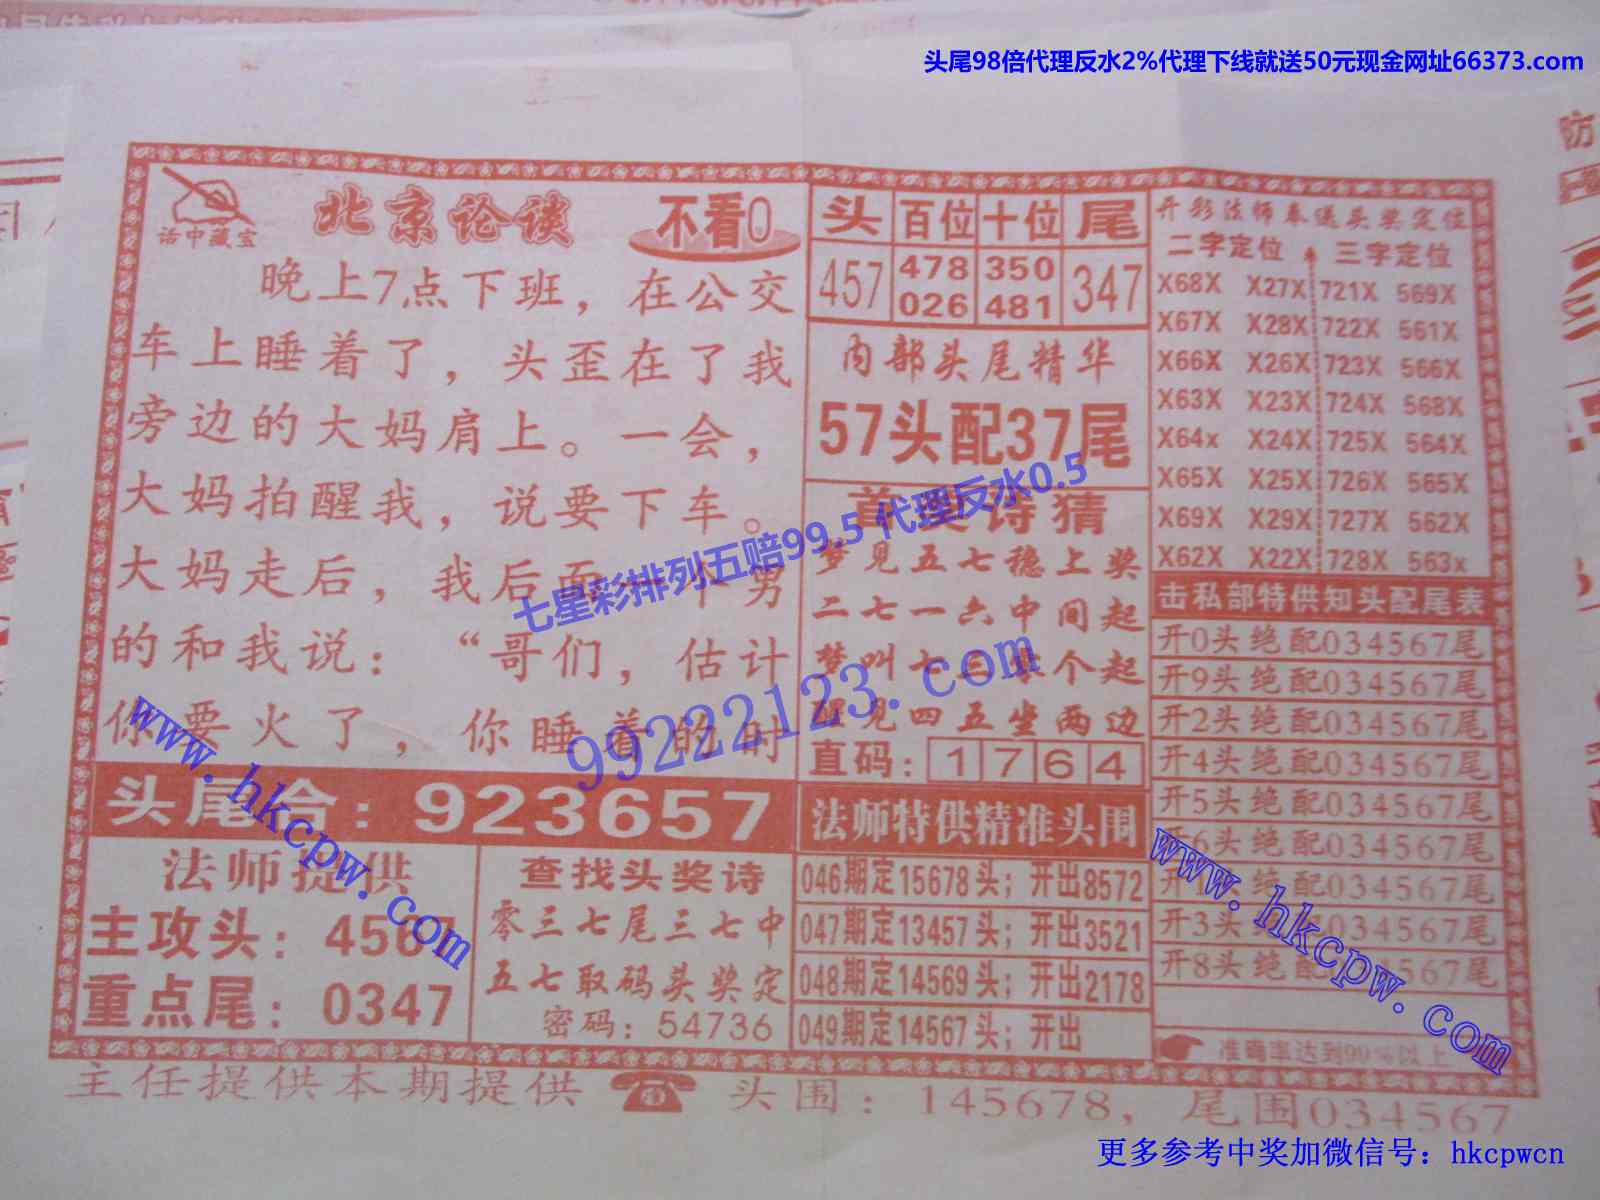 头尾98倍代理反水2%代理下线就送50元现金网址66373.com
话中藏宝
北京论谈
不看0
晚上7点下班，在公交
车上睡着了，头歪在了我
旁边的大妈肩上。一会，
大妈拍醒我，说要下车。
大妈走后，我后面一个男
的和我说：“哥们，估计
你要火了，你睡着的时
头尾合：923657
法师提供
主攻头：4567
重点尾：0347
查找头奖诗
零三七尾三七中
五七取码头奖定
密码：54736
头 百位 十位 尾
457 478 350 347
026 481
内部头尾精华
57头配37尾
首奖诗猜
梦见五七稳上奖
二七一六中间起
梦叫七三 个起
醒见四五坐两边
直码：1764
法师特供精准头围
046期定15678头；开出8572
047期定13457头；开出3521
048期定14569头；开出2178
049期定14567头；开出
开彩法师奉送头奖定位
二字定位 三字定位
X68X X27X 721X 569X
X67X X28X 722X 561X
X66X X26X 723X 566X
X63X X23X 724X 568X
X64x X24X 725X 564X
X65X X25X 726X 565X
X69X X29X 727X 562X
X62X X22X 728X 563x
击私部特供知头配尾表
开0头绝配034567尾
开9头绝配034567尾
开2头绝配034567尾
开4头绝配034567尾
开5头绝配034567尾
开6头绝配034567尾
开1头绝配034567尾
开3头绝配034567尾
开8头绝配034567尾
准确率达到99%以上
主任提供本期提供 头围：145678，尾围034567
七星彩排列五赔99.5 代理反水0.5
99222123.com
www.hkcpw.com
www.hkcpw.com
更多参考中奖加微信号：hkcpwcn
防